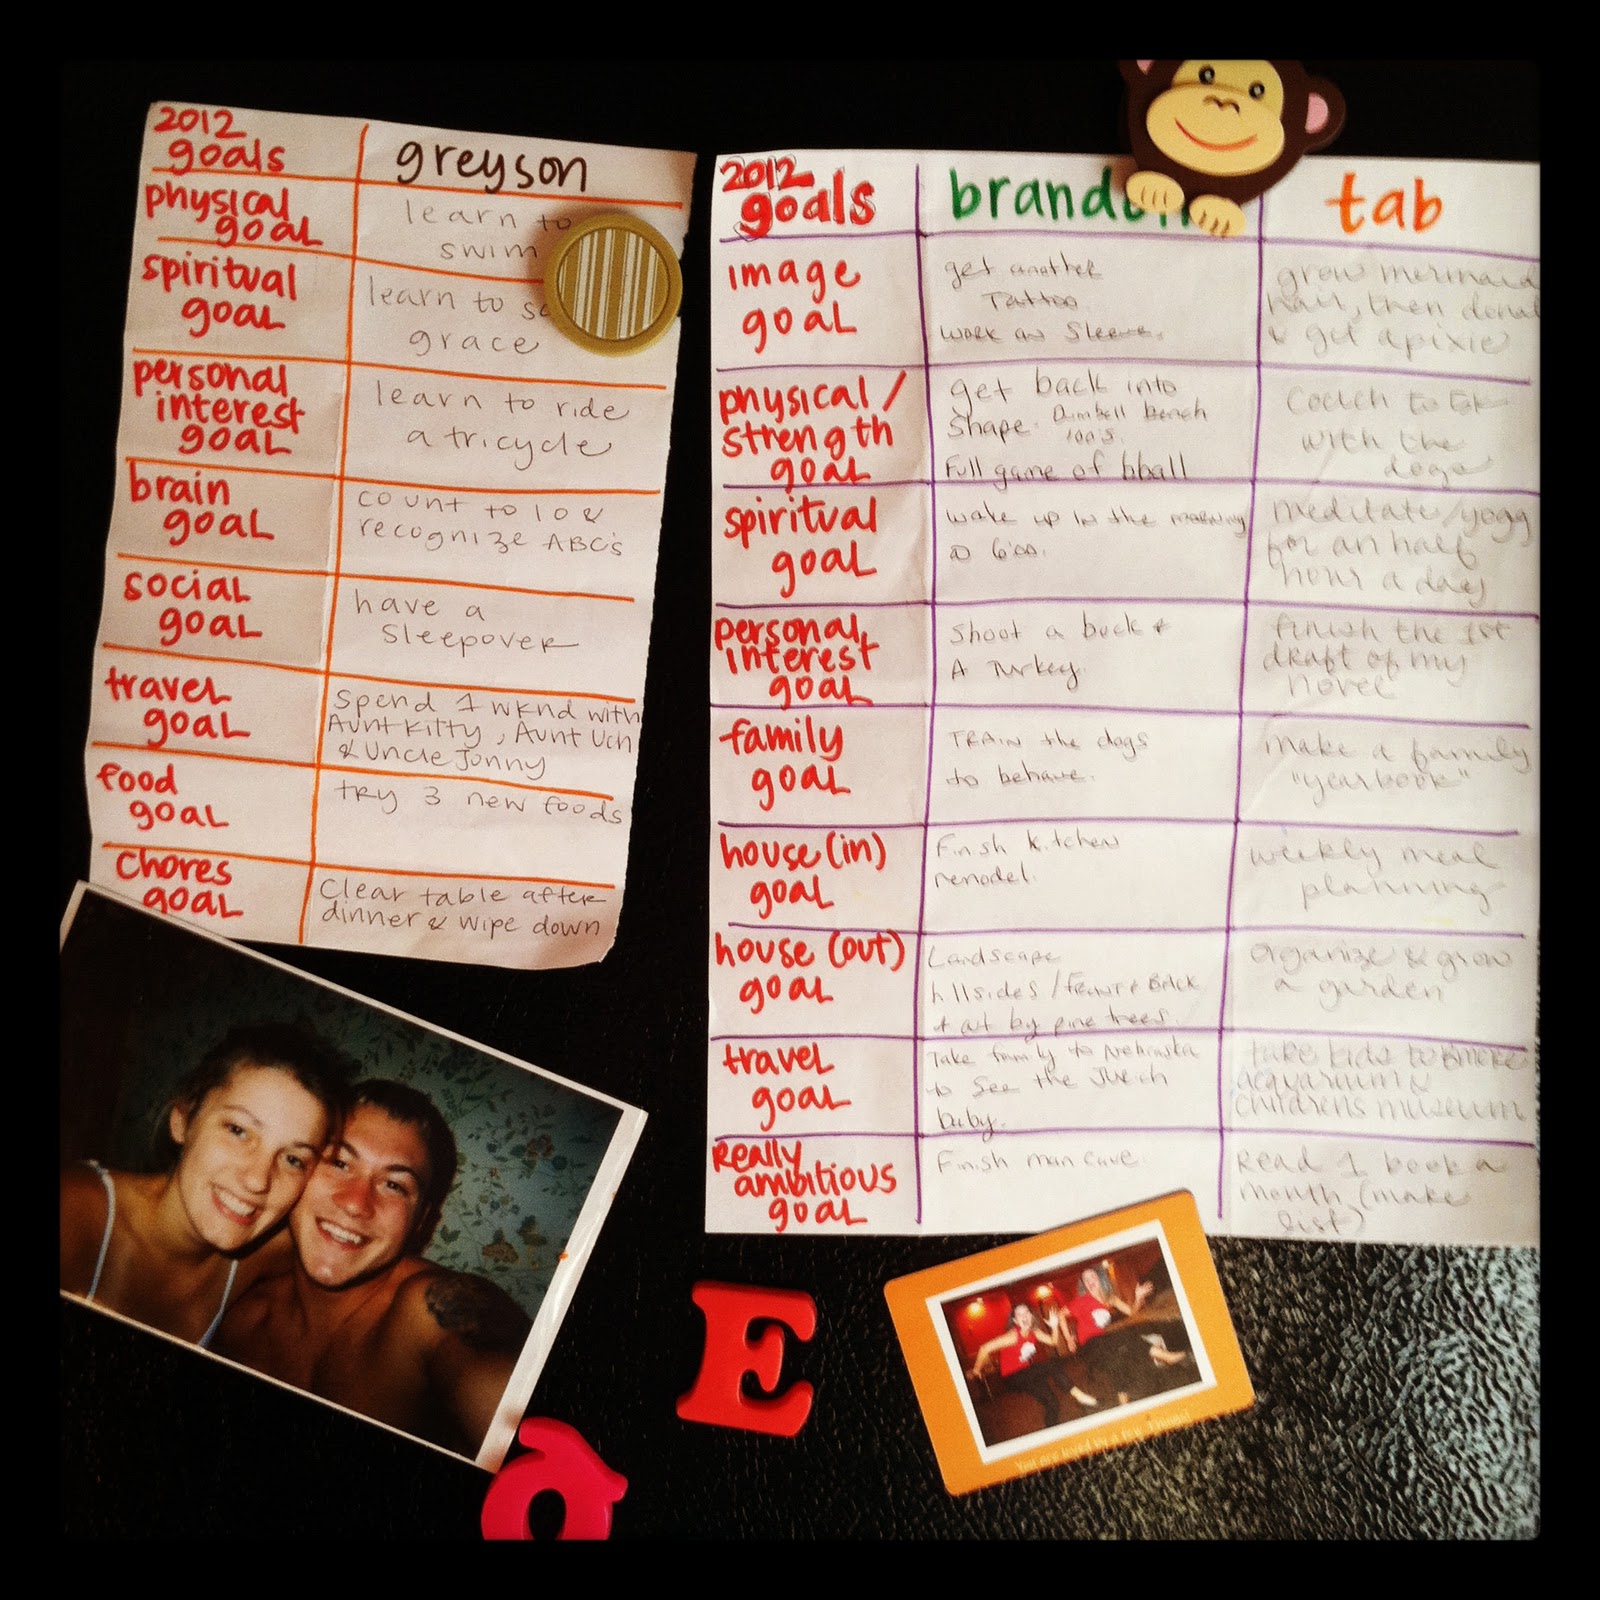 2012
goals
greyson
physical
goal
learn to
swim
spiritual
goal
learn to
grace
personal
interest
goal
learn to ride
a tricycle
brain
goal
count to 10 &
recognize ABC's
social
goal
have a
sleepover
travel
goal
spend 1 wknd with
Aunt Kitty, Aunt Uch
& Uncle Jonny
food
goal
try 3 new foods
chores
goal
Clear table after
dinner & wipe down
2012
goals
brandon
tab
image
goal
get another
Tattoo.
work on sleeve.
grow mermaid
hair, then donate
& get a pixie
physical /
strength
goal
get back into
shape. Dumbell bench
100's.
Full game of bball
Couch to 5k
with the
dogs
spiritual
goal
wake up in the morning
@ 6:00.
meditate/yoga
for an half
hour a day
personal
interest
goal
Shoot a buck &
A Turkey.
finish the 1st
draft of my
novel
family
goal
TRAIN the dogs
to behave.
make a family
"yearbook"
house (in)
goal
Finish kitchen
remodel.
weekly meal
planning
house (out)
goal
Landscape
hillsides / Front & Back
& art by pine trees.
organize & grow
a garden
travel
goal
Take family to Nebraska
to see the
baby.
take kids to
acquarium &
childrens museum
Really
ambitious
goal
Finish man cave.
Read 1 book a
month (make
list)
E
a
You are loved by a few